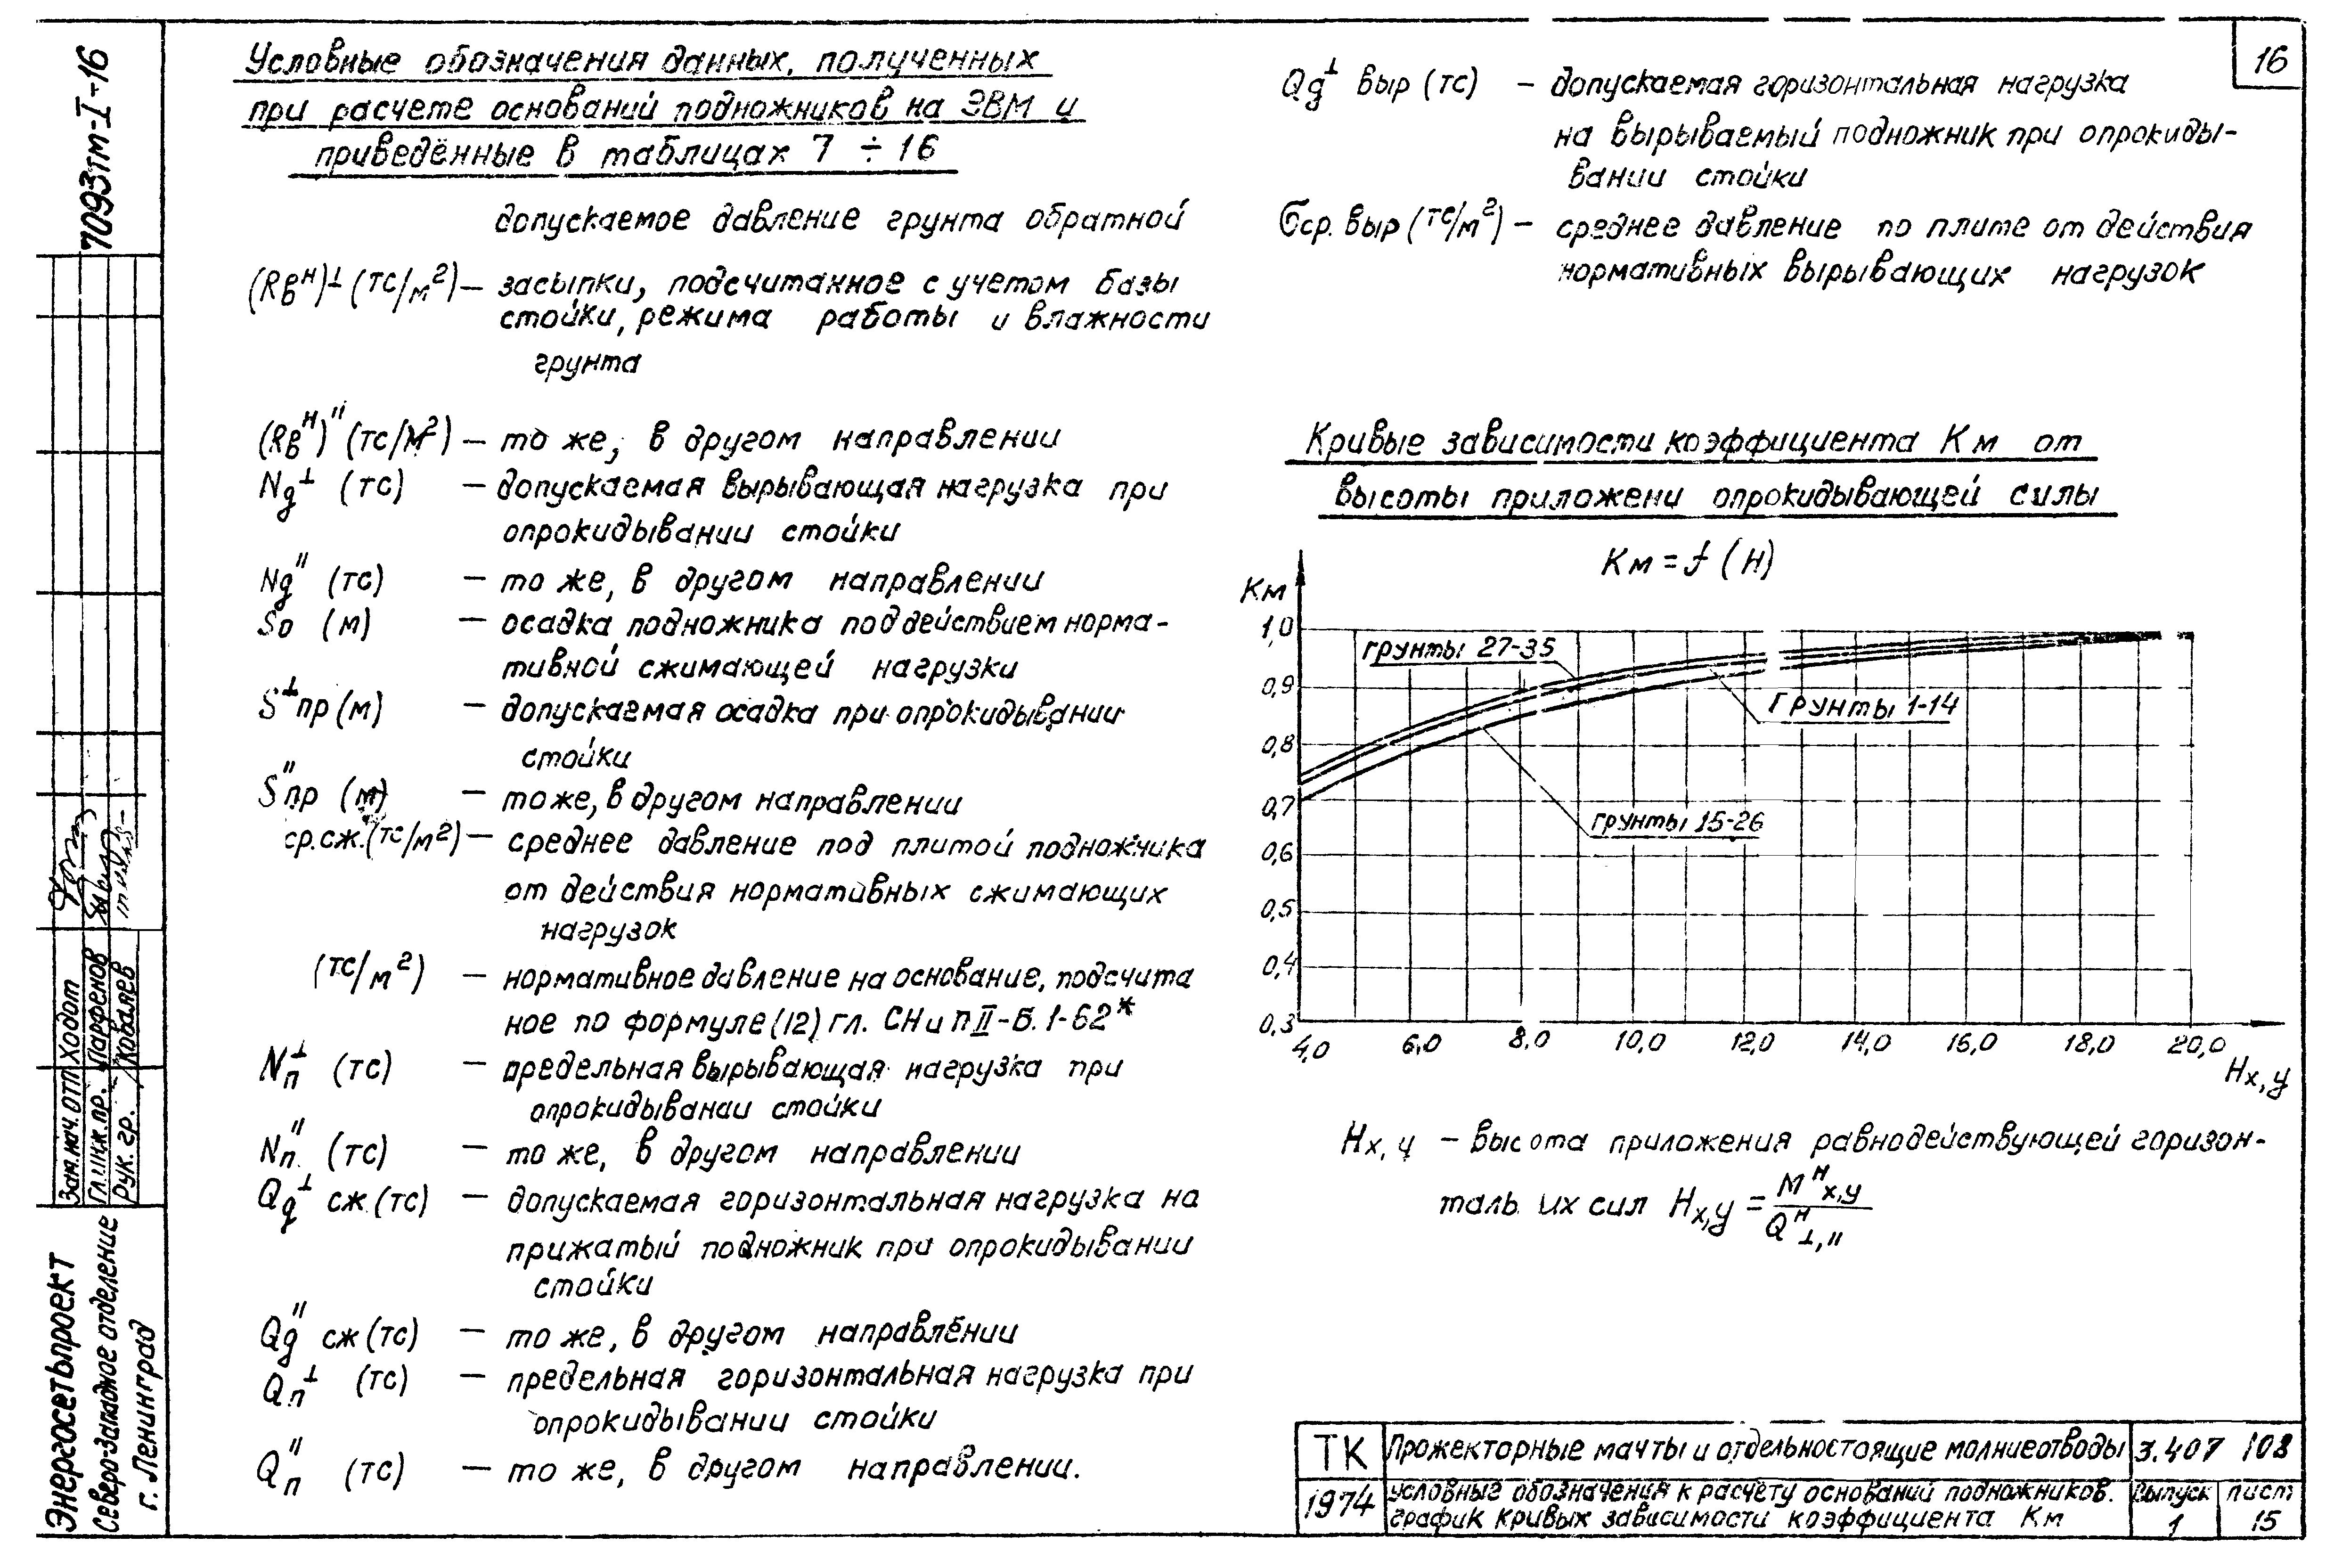 7093тм-I-16
16
Условные обозначения данных, полученных
при расчете оснований подножников на ЭВМ и
приведённые в таблицах 7 ÷ 16
допускаемое давление грунта обратной
(Rвᴴ)⊥ (тс/м²) – засыпки, подсчитанное с учетом базы
стойки, режима работы и влажности
грунта
(Rвᴴ)" (тс/м²) – то же, в другом направлении
Ng⊥ (тс) – допускаемая вырывающая нагрузка при
опрокидывании стойки
Ng" (тс) – то же, в другом направлении
So (м) – осадка подножника под действием норма-
тивной сжимающей нагрузки
S⊥пр (м) – допускаемая осадка при опрокидывании
стойки
S"пр (м) – то же, в другом направлении
ср.сж. (тс/м²) – среднее давление под плитой подножника
от действия нормативных сжимающих
нагрузок
(тс/м²) – нормативное давление на основание, подсчита
ное по формуле (12) гл. СНиП II-Б. 1-62*
Nп⊥ (тс) – предельная вырывающая нагрузка при
опрокидывании стойки
Nп" (тс) – то же, в другом направлении
Qg⊥ сж (тс) – допускаемая горизонтальная нагрузка на
прижатый подножник при опрокидывании
стойки
Qg" сж (тс) – то же, в другом направлении
Qп⊥ (тс) – предельная горизонтальная нагрузка при
опрокидывании стойки
Qп" (тс) – то же, в другом направлении.
Qg⊥ выр (тс) – допускаемая горизонтальная нагрузка
на вырываемый подножник при опрокиды-
вании стойки
бср. выр (тс/м²) – среднее давление по плите от действия
нормативных вырывающих нагрузок
Кривые зависимости коэффициента Км от
высоты приложени опрокидывающей силы
Км = f (Н)
Км
1,0
0,9
0,8
0,7
0,6
0,5
0,4
0,3
грунты 27-35
Грунты 1-14
грунты 15-26
4,0 6,0 8,0 10,0 12,0 14,0 16,0 18,0 20,0
Нх,у
Нх,у – высота приложения равнодействующей горизон-
таль их сил Нх,у = Мᴴх,у / Qᴴ⊥,"
Зам.нач.ОТП Ходот
Гл.инж.пр. Парфенов
Рук. гр. Коваяев
Энергосетьпроект
Северо-Западное отделение
г. Ленинград
ТК Прожекторные мачты и отдельностоящие молниеотводы 3.407 108
1974 условные обозначения к расчёту оснований подножников. Выпуск лист
график кривых зависимости коэффициента Км 1 15